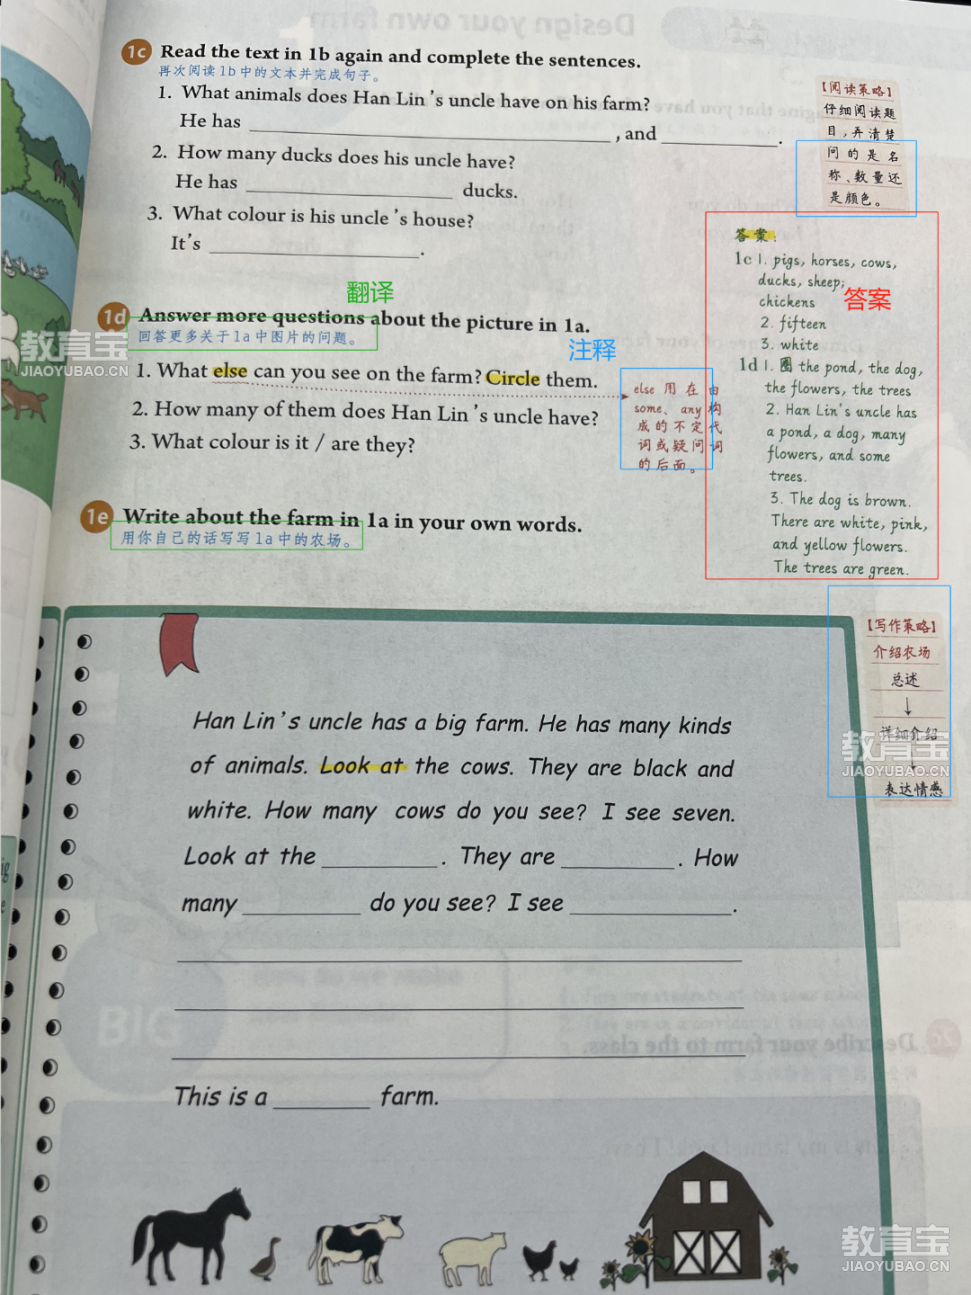 1c Read the text in 1b again and complete the sentences.
再次阅读1b中的文本并完成句子。
1. What animals does Han Lin's uncle have on his farm?
He has ____________________, and __________.
2. How many ducks does his uncle have?
He has ____________________ ducks.
3. What colour is his uncle's house?
It's ____________________.
【阅读策略】
仔细阅读题
目,弄清楚
问的是名
称、数量还
是颜色。
翻译
1d Answer more questions about the picture in 1a.
回答更多关于1a中图片的问题。
注释
1. What else can you see on the farm? Circle them.
2. How many of them does Han Lin's uncle have?
3. What colour is it / are they?
else 用在由
some、any构
成的不定代
词或疑问词
的后面。
答案:
1c 1. pigs, horses, cows,
ducks, sheep;
chickens
答案
2. fifteen
3. white
1d 1. 圈 the pond, the dog,
the flowers, the trees
2. Han Lin's uncle has
a pond, a dog, many
flowers, and some
trees.
3. The dog is brown.
There are white, pink,
and yellow flowers.
The trees are green.
1e Write about the farm in 1a in your own words.
用你自己的话写写1a中的农场。
【写作策略】
介绍农场
总述
↓
详细介绍
↓
表达情感
Han Lin's uncle has a big farm. He has many kinds
of animals. Look at the cows. They are black and
white. How many cows do you see? I see seven.
Look at the __________. They are __________. How
many __________ do you see? I see ______________.
This is a ________ farm.
教育宝
JIAOYUBAO.CN
教育宝
JIAOYUBAO.CN
教育宝
JIAOYUBAO.CN
BIG
Describe your farm to the class.
Design your own farm